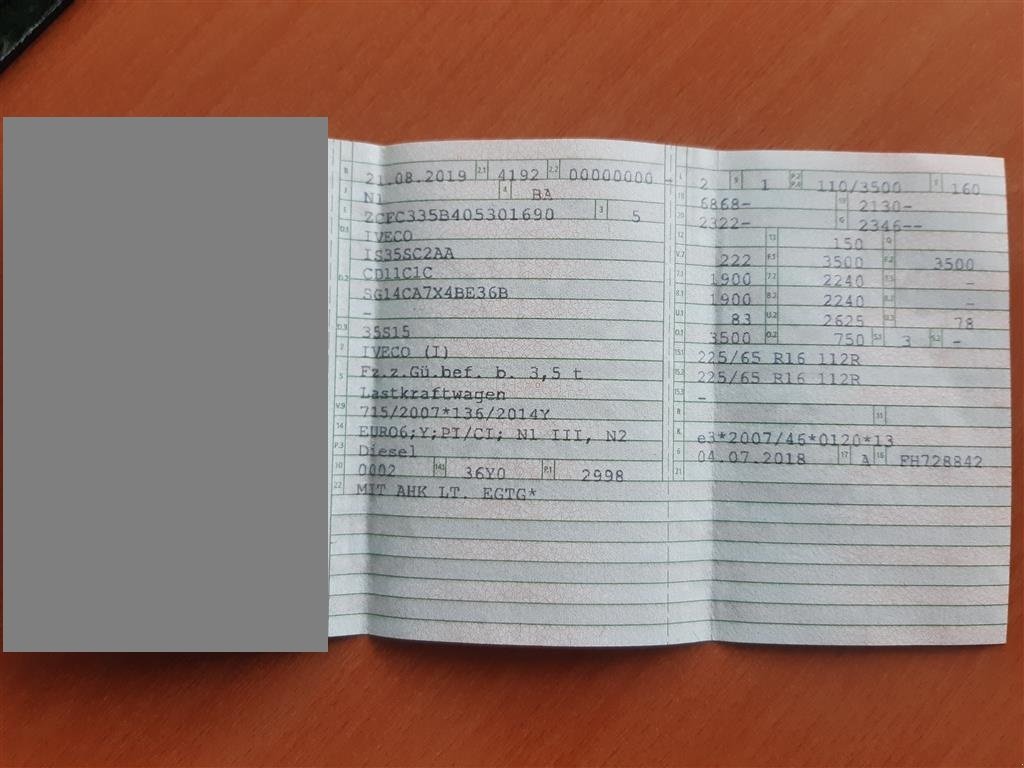 B 21.08.2019 2.1 4192 2.2 00000000
J N1 4 BA
E ZCFC335B405301690 3 5
D.1 IVECO
IS35SC2AA
D.2 CD11C1C
SG14CA7X4BE36B
-
D.3 35S15
2 IVECO (I)
5 Fz.z.Gü.bef. b. 3,5 t
Lastkraftwagen
V.9 715/2007*136/2014Y
14 EURO6;Y;PI/CI; N1 III, N2
P.3 Diesel
10 0002 14.1 36Y0 P.1 2998
22 MIT AHK LT. EGTG*
L 2 9 1 P.2 P.4 110/3500 T 160
18 6868- 19 2130-
20 2322- G 2346--
12 13 150 Q
V.7 222 F.1 3500 F.2 3500
7.1 1900 7.2 2240 7.3 -
8.1 1900 8.2 2240 8.3 -
U.1 83 U.2 2625 U.3 78
O.1 3500 O.2 750 S.1 3 S.2 -
15.1 225/65 R16 112R
15.2 225/65 R16 112R
15.3 -
R 11
K e3*2007/46*0120*13
6 04.07.2018 17 A 16 FH728842
21